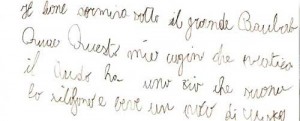 il leone sormina sotto il grande Baobab
Quase Questo mio cugin che pratica
il Judo ha uno zio che suona
lo silofono e beve un poco di